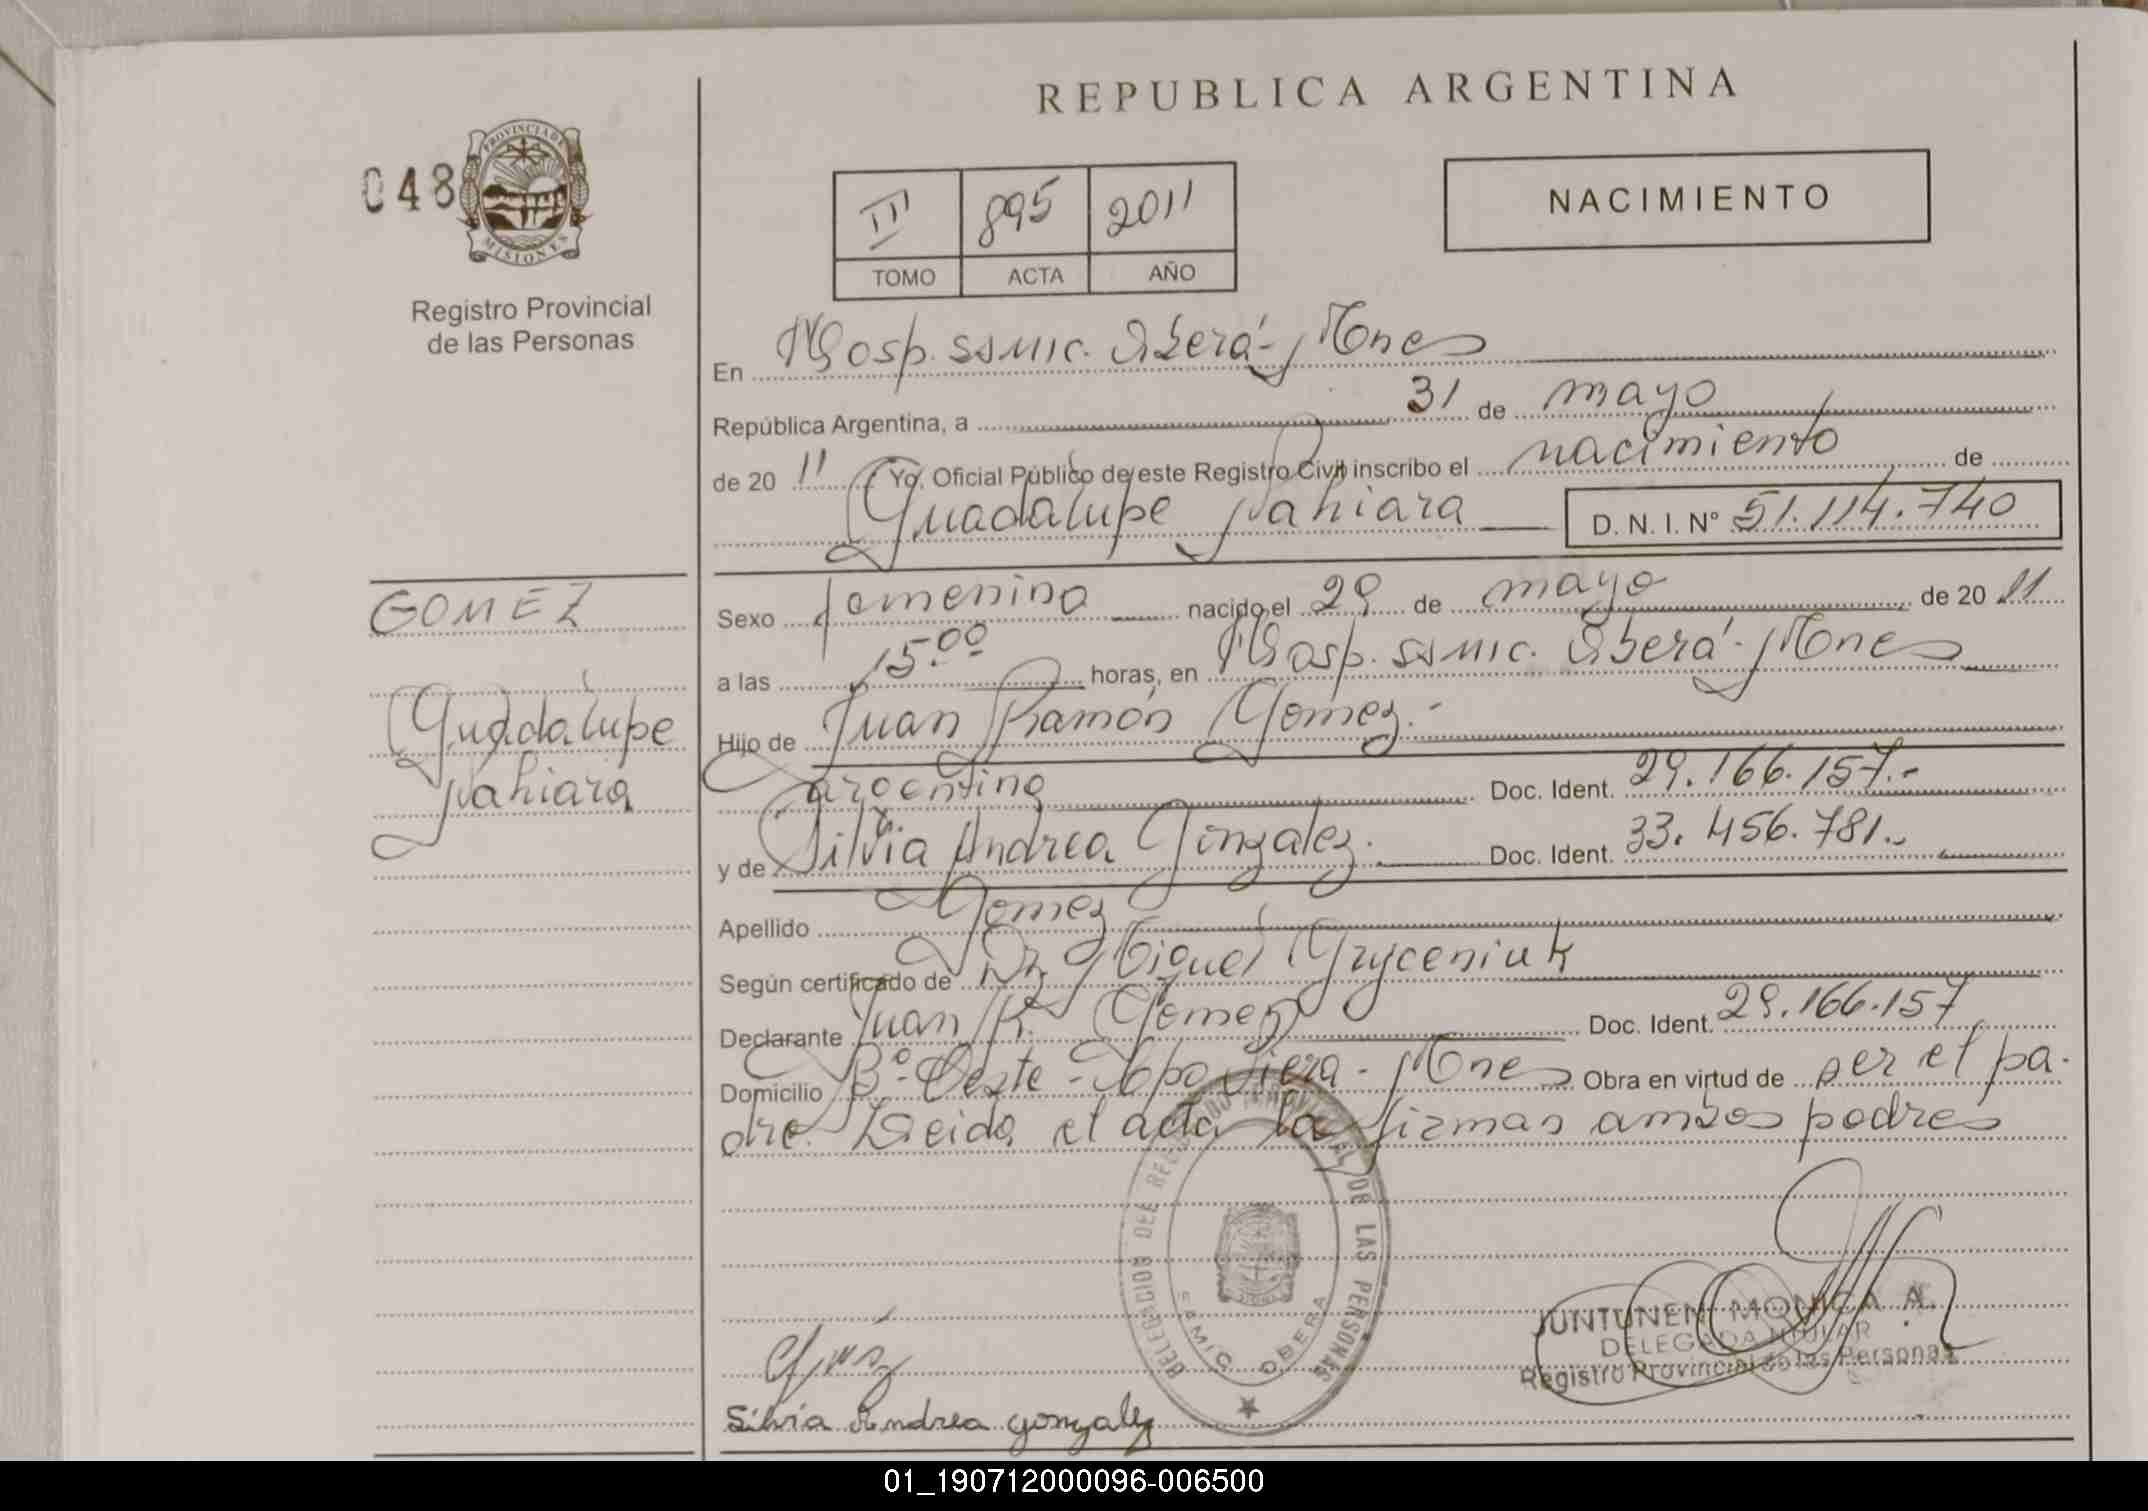 REPUBLICA ARGENTINA
048
PROVINCIA DE
MISIONES
Registro Provincial
de las Personas
III 895 2011
TOMO ACTA AÑO
NACIMIENTO
En Hosp. SAMIC. Oberá - Mnes
República Argentina, a 31 de mayo
de 20 11 Yo, Oficial Público de este Registro Civil inscribo el nacimiento de
Guadalupe Jahiara D. N. I. Nº 51.114.740
GOMEZ
Guadalupe
Jahiara
Sexo femenino nacido el 29 de mayo de 20 11
a las 15.00 horas, en Hosp. SAMIC. Oberá - Mnes
Hijo de Juan Ramón Gomez.-
argentino Doc. Ident. 29.166.157.-
y de Silvia Andrea Gonzalez. Doc. Ident. 33.456.781.-
Apellido Gomez
Según certificado de Dr. Miguel Gryceniuk
Declarante Juan R. Gomez Doc. Ident. 29.166.157
Domicilio Bº Oeste - Cpo Viera - Mnes Obra en virtud de ser el pa-
dre. Leida el acta la firman ambos padres
DELEGACION DEL REGISTRO PROVINCIAL DE LAS PERSONAS
SAMIC OBERA
JUNTUNEN MONICA A.
DELEGADA TITULAR
Registro Provincial de las Personas
Silvia Andrea gonzalez
01_190712000096-006500